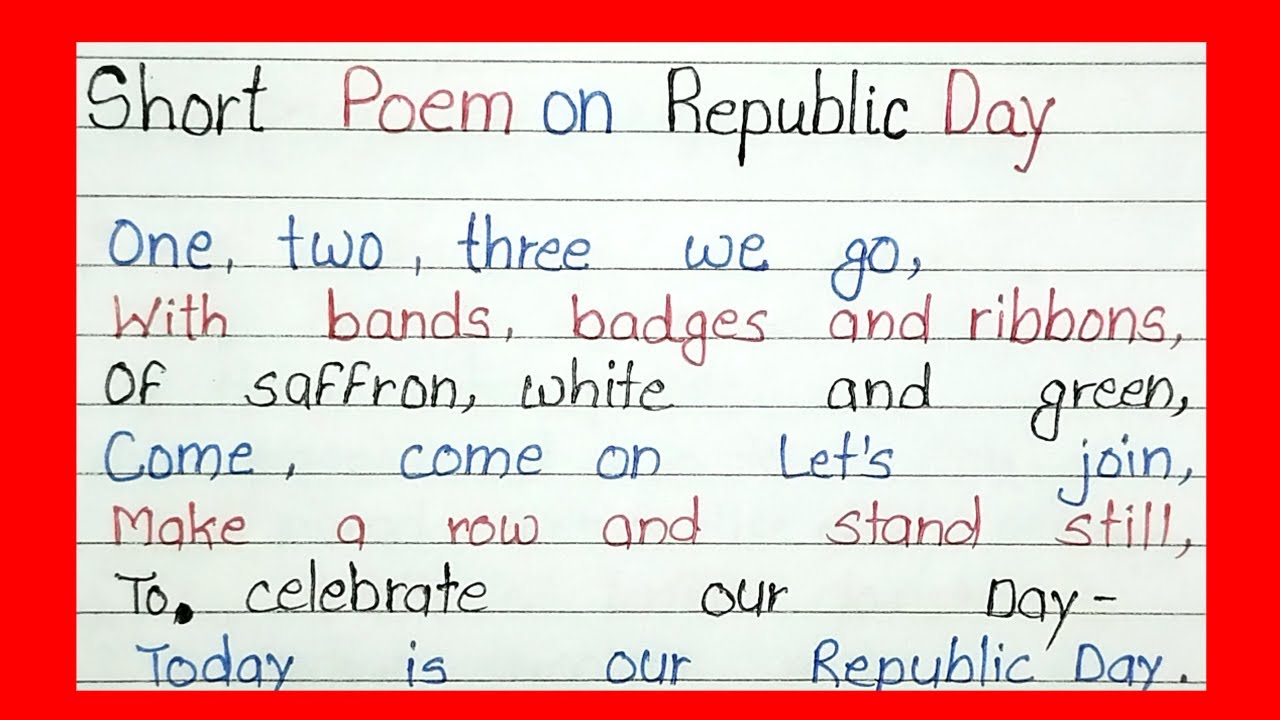 Short Poem on Republic Day
One, two, three we go,
With bands, badges and ribbons,
Of saffron, white and green,
Come, come on Let's join,
Make a row and stand still,
To. celebrate our Day-
Today is our Republic Day.